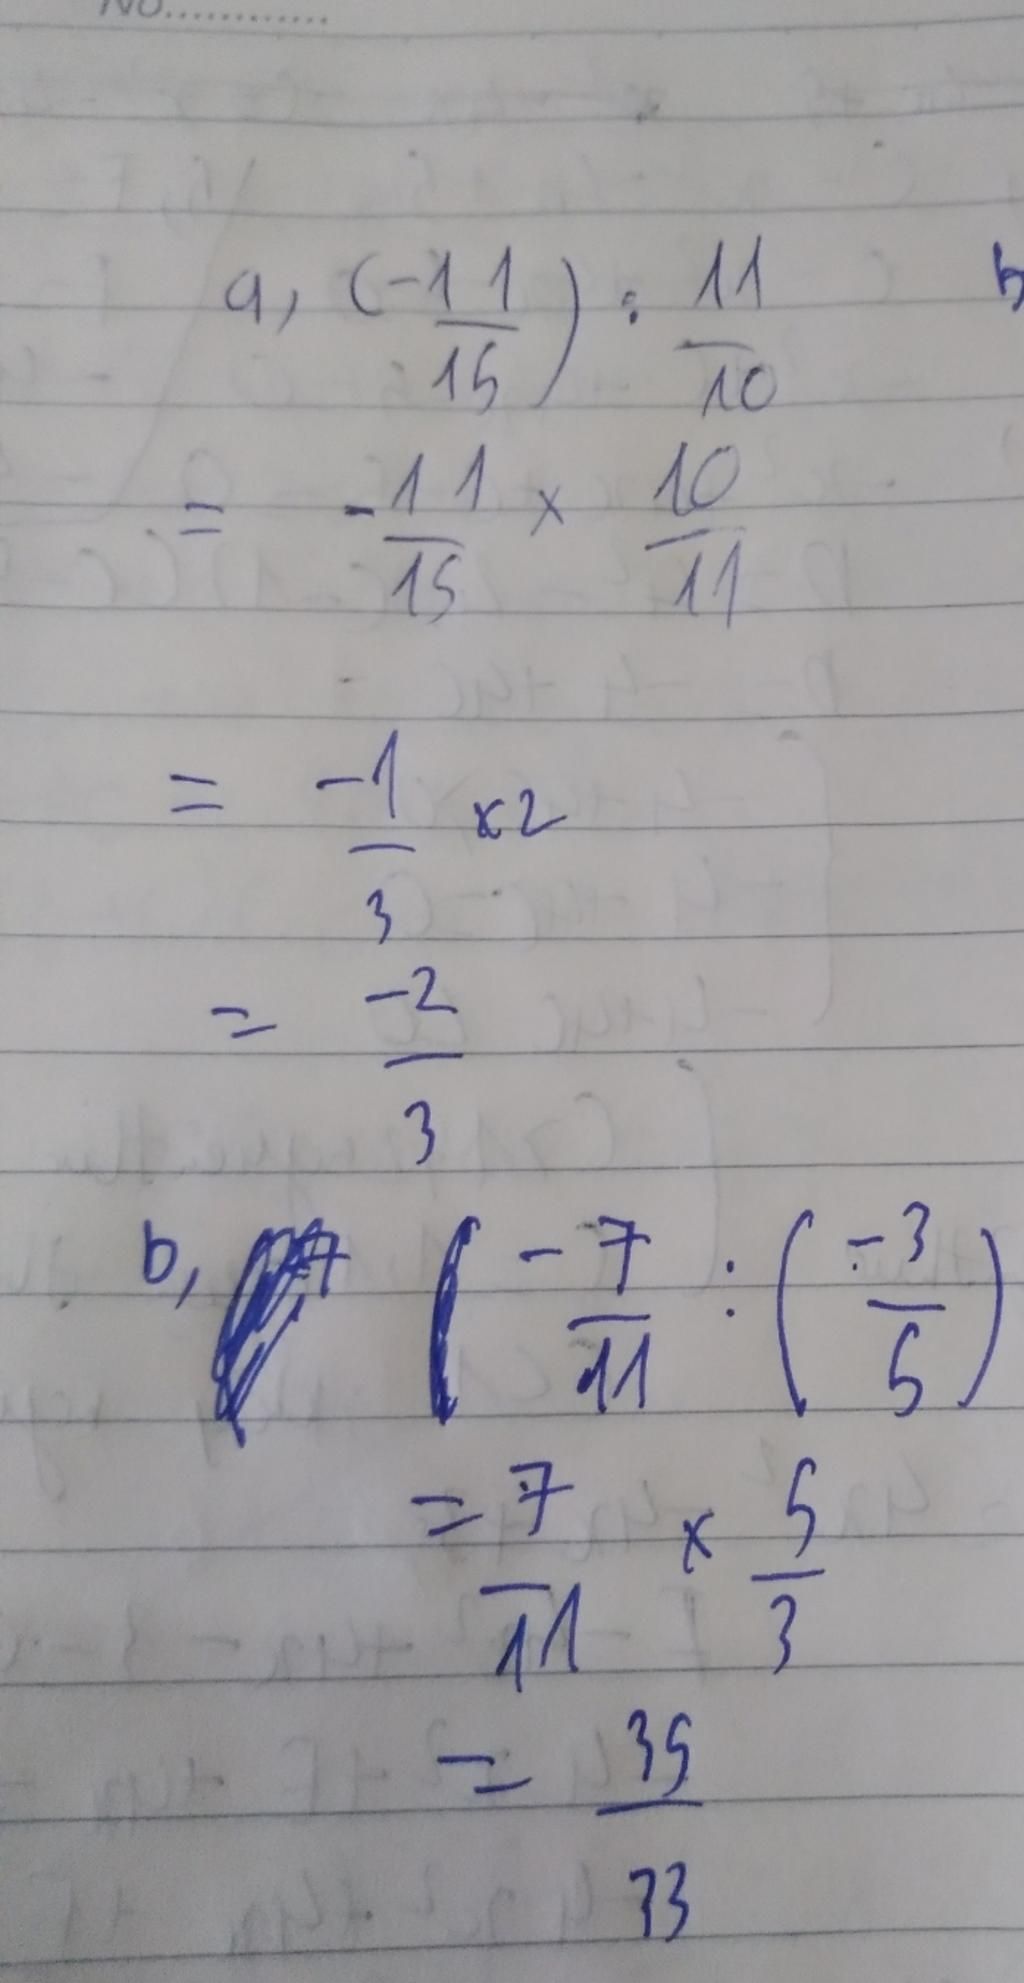 No............
a, (-11/15) : 11/10
b
= -11/15 × 10/11
= -1/3 ×2
= -2/3
b, ( -7/11 : (-3/5)
= 7/11 × 5/3
= 35/33